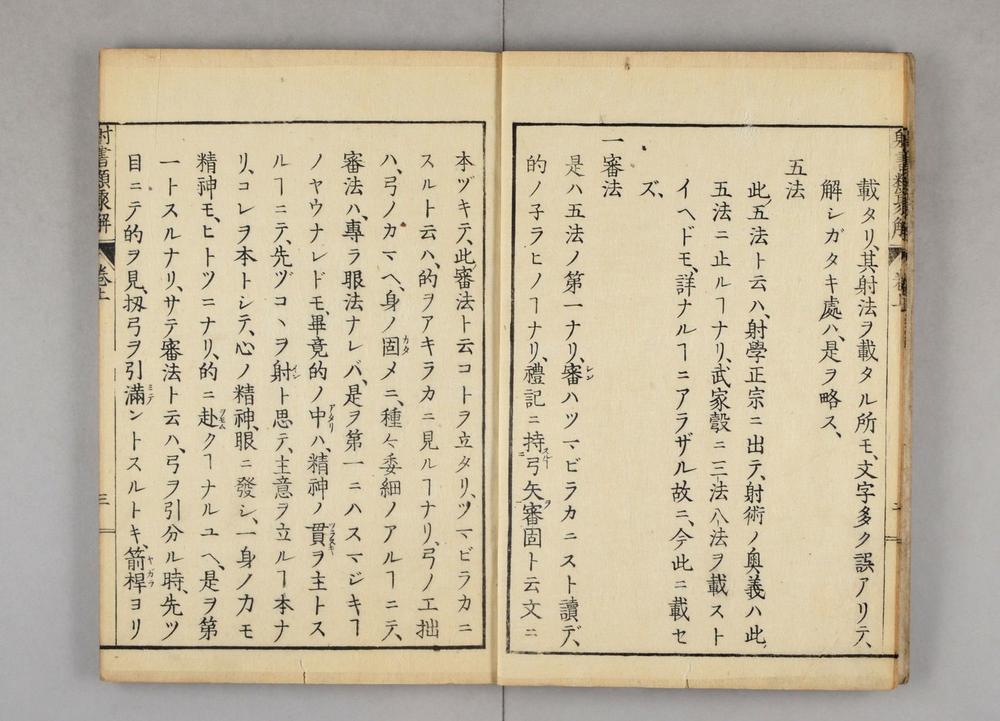 載タリ、其射法ヲ載タル所モ、文字多ク誤アリテ、
解シガタキ處ハ、是ヲ略ス、
五法
此五法ト云ハ、射學正宗ニ出テ、射術ノ奥義ハ此
五法ニ止ルヿナリ、武家彀ニ三法八法ヲ載スト
イヘドモ、詳ナルヿニアラザル故ニ、今此ニ載セ
ズ、
一審法
是ハ五法ノ第一ナリ、審ハツマビラカニスト讀デ、
的ノ子ラヒノヿナリ、禮記ニ持弓矢審固ト云文ニ
本ヅキテ、此審法ト云コトヲ立タリ、ツマビラカニ
スルト云ハ、的ヲアキラカニ見ルヿナリ、弓ノ工拙
ハ、弓ノカマヘ、身ノ固メニ、種々委細ノアルヿニテ、
審法ハ、專ラ眼法ナレバ、是ヲ第一ニハスマジキヿ
ノヤウナレドモ、畢竟的ノ中ハ、精神ノ貫ヲ主トス
ルヿニテ、先ヅコヽヲ射ト思テ、主意ヲ立ルヿ本ナ
リ、コレヲ本トシテ、心ノ精神、眼ニ發シ、一身ノ力モ
精神モ、ヒトツニナリ、的ニ赴クヿナルユヘ、是ヲ第
一トスルナリ、サテ審法ト云ハ、弓ヲ引分ル時、先ツ
目ニテ的ヲ見、扨弓ヲ引滿ントスルトキ、箭桿ヨリ
射書類聚解 卷上
三